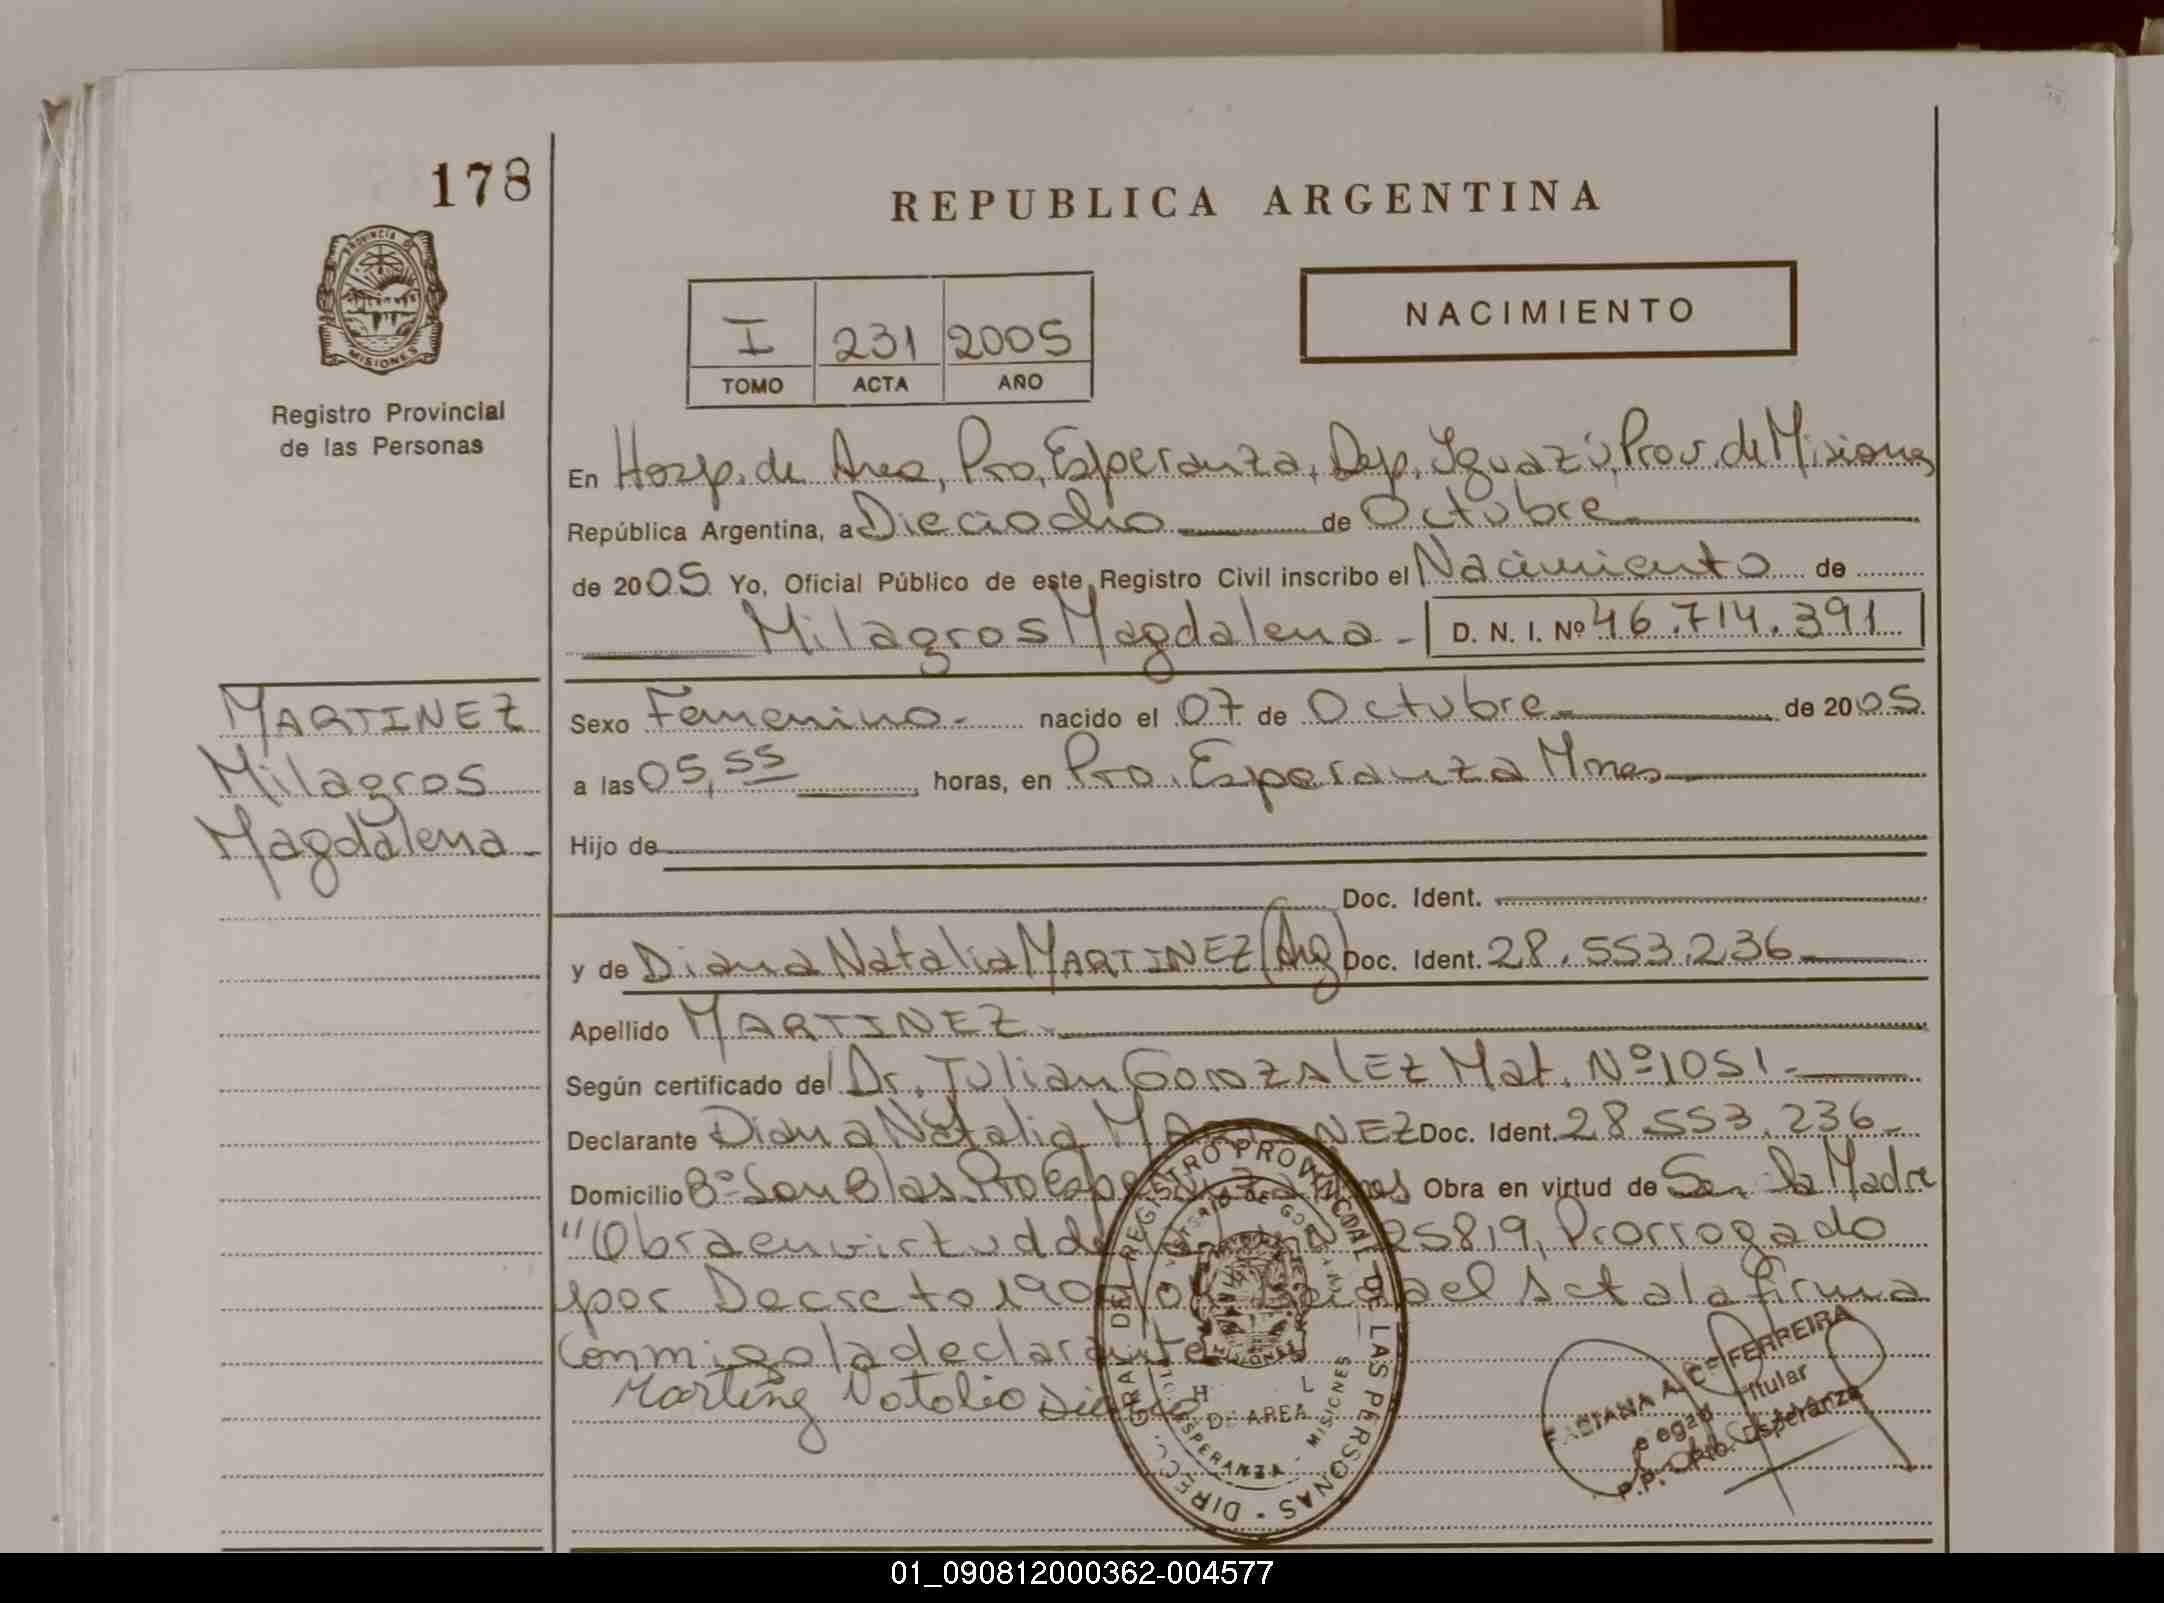 178
REPUBLICA ARGENTINA
PROVINCIA DE
MISIONES
Registro Provincial
de las Personas
NACIMIENTO
I 231 2005
TOMO ACTA AÑO
En Hosp. de Area, Pto. Esperanza, Dep. Iguazú, Prov. de Misiones
República Argentina, a Dieciocho de Octubre
de 2005 Yo, Oficial Público de este Registro Civil inscribo el Nacimiento de
Milagros Magdalena - D. N. I. Nº 46.714.391
MARTINEZ
Milagros
Magdalena -
Sexo Femenino - nacido el 07 de Octubre de 2005
a las 05,55 horas, en Pto. Esperanza Mnes
Hijo de
Doc. Ident.
y de Diana Natalia MARTINEZ (Arg) Doc. Ident. 28.553.236
Apellido MARTINEZ
Según certificado del Dr. Julian GONZALEZ Mat. Nº 1051 -
Declarante Diana Natalia MARTINEZ Doc. Ident. 28.553.236 -
Domicilio Bº San Blas Pto Esperanza Mnes Obra en virtud de Ser la Madre
"Obra en virtud de 25819, Prorrogado
por Decreto el Acta la firma
Conmigo la declarante
Martinez Natalia
DIRECC. GRAL. DEL REGISTRO PROVINCIAL DE LAS PERSONAS
MINISTERIO DE GOBIERNO
MISIONES
H L
DE AREA
ESPERANZA - MISIONES
FABIANA A. C. FERREIRA
Titular
Pto. Esperanza
01_090812000362-004577